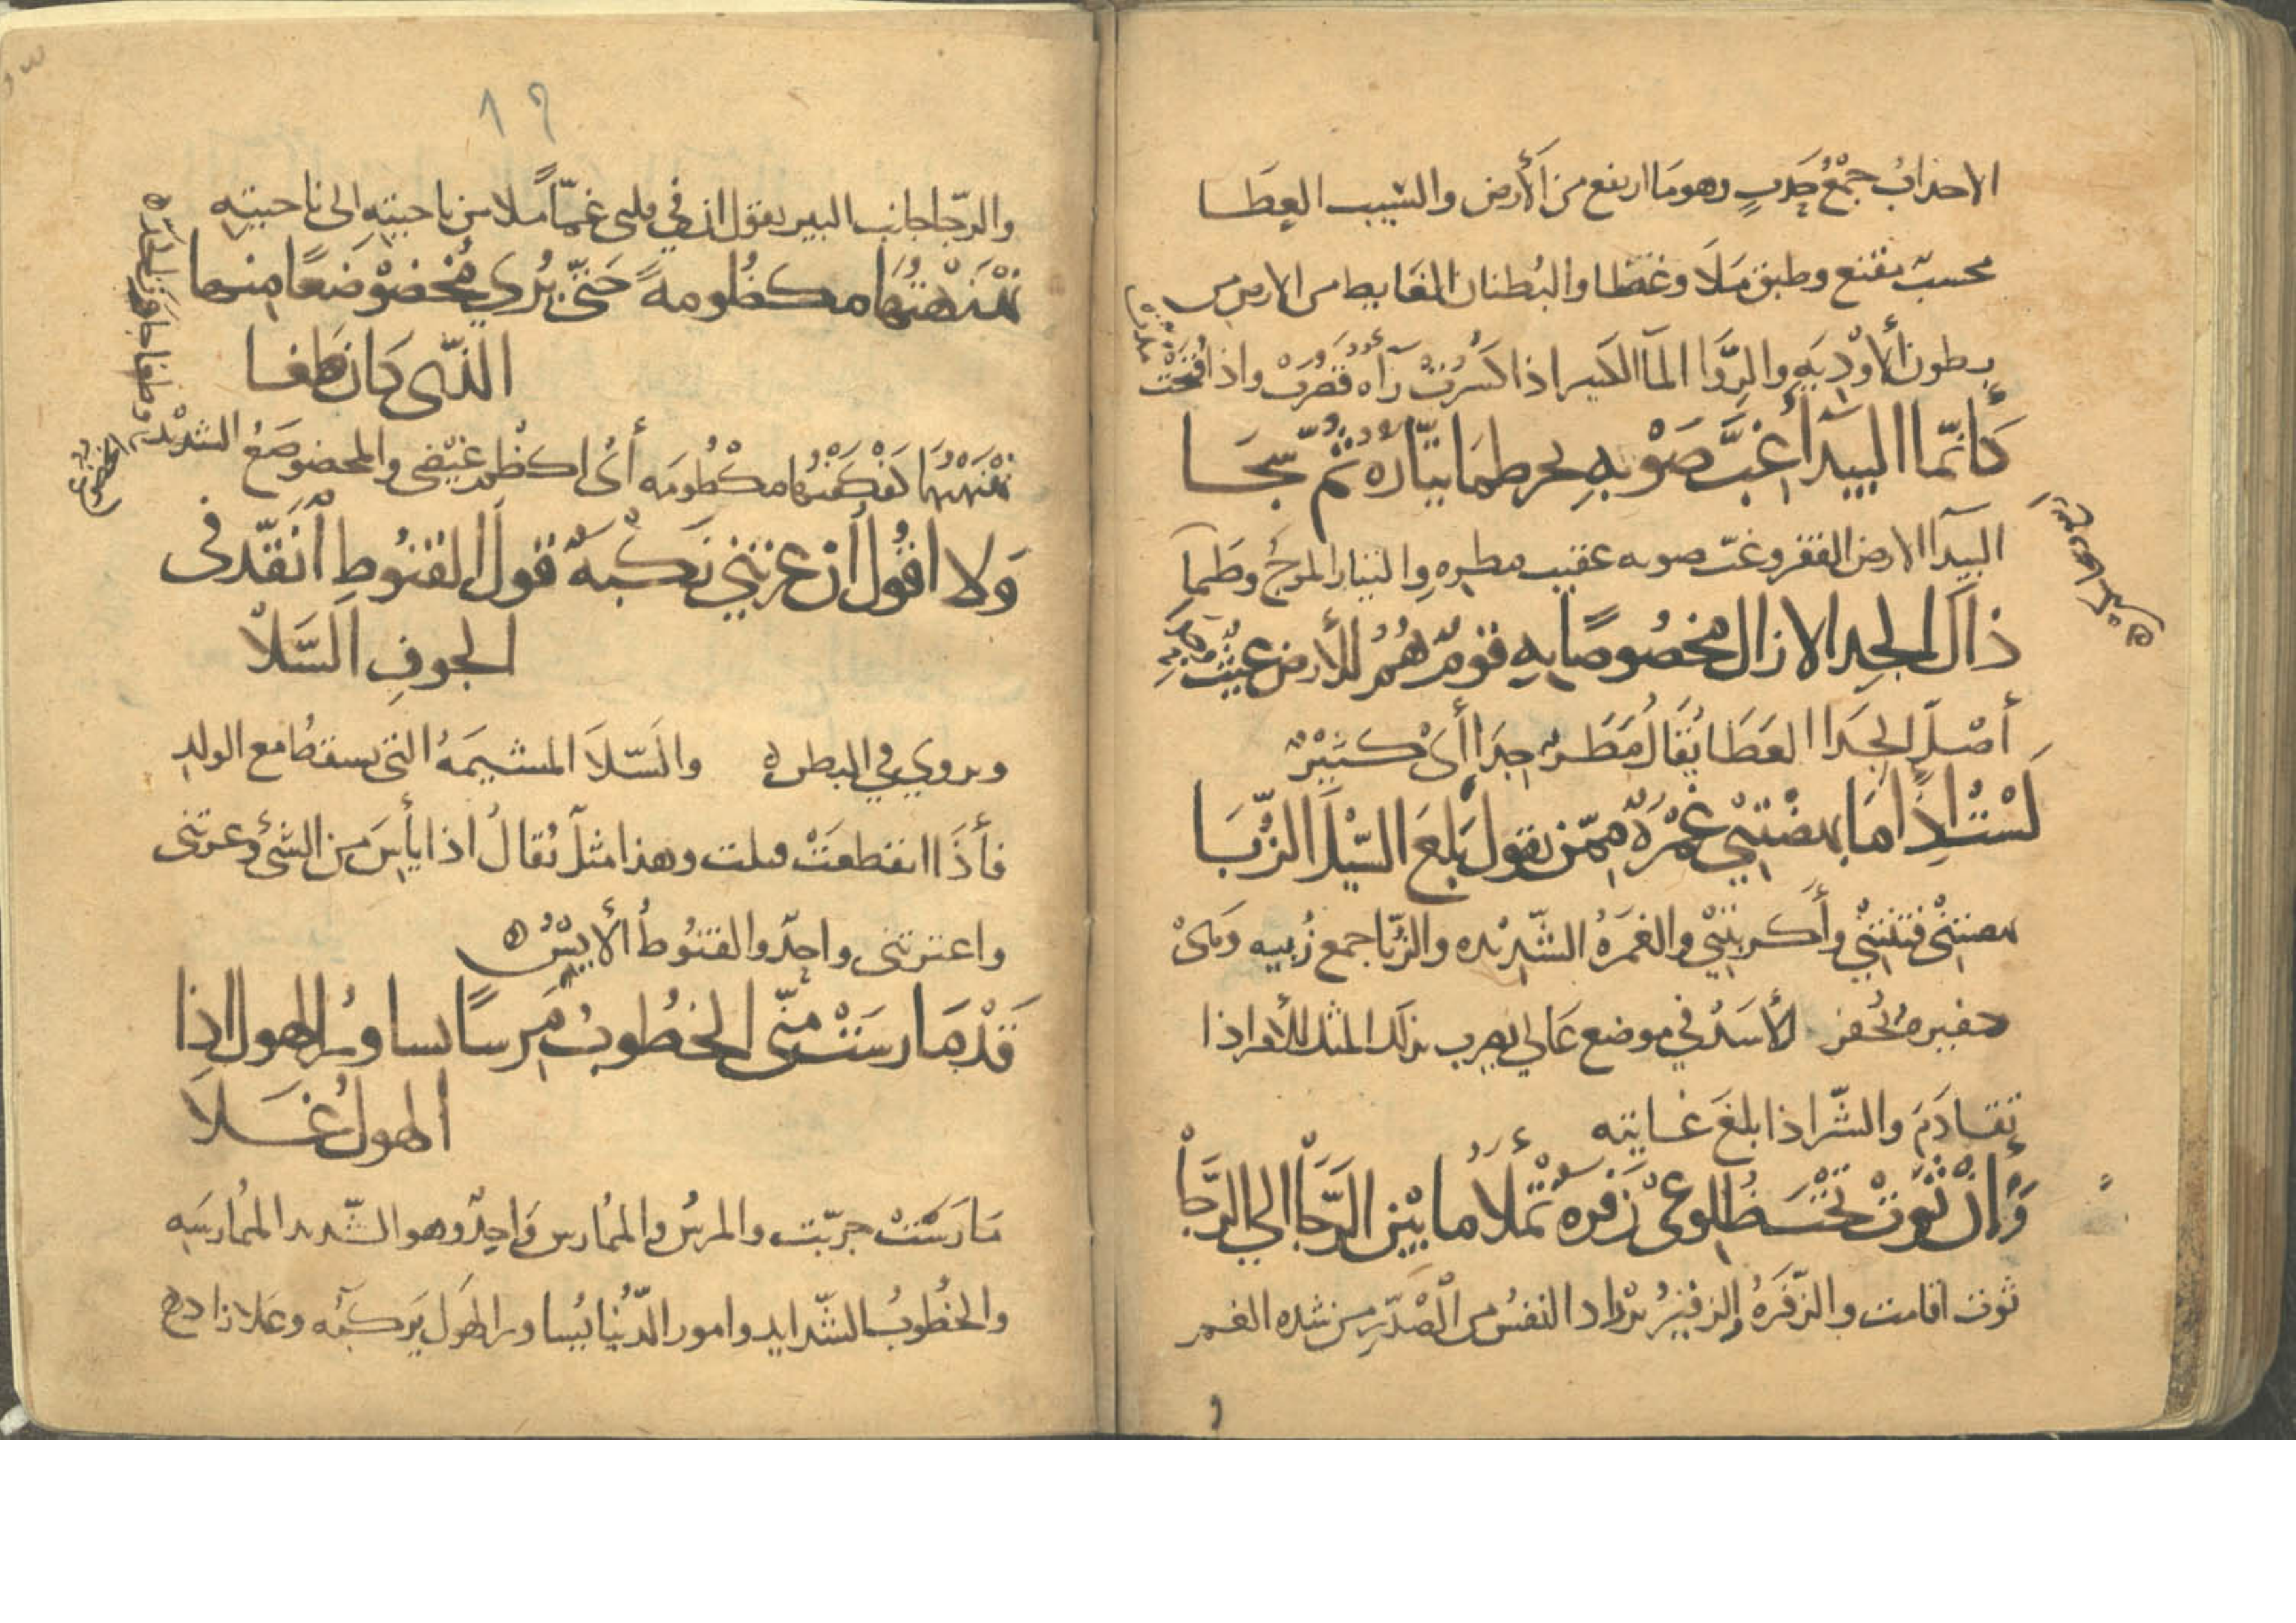 الاحداب جَمْعُ حَدَبٍ وهو مَا ارتفع من الأَرض والسَّيب العِطَـا
محسبٌ مقنع وطبق مَلَأَ وغَطَا والبُطنان الغَابط من الارض من
بطون الأَوْدِيَةِ والرِّوَا المآ الكثير اذا كَسَرْتَ رَآه قَصَرْتَ واذا فُتِحَتْ مدت
كَأَنَّمَا البيدَآ غِبَّ صَوْبِهِ بحر طمَا تيَّارُهُ ثُمَّ سَجَـا
البيَدآ الارض القفر وغبّ صوبه عقيب مطره والتيار الموج وطمآ
ذاكَ الجدا لا زال مخصُوصًا بِهِ قَوْمٌ هُمُ للأرض غيثٌ
أصْل الجَدَا العَطَا يُقَالُ مَطَرٌ جَدَا أَىْ كَثِيْرٌ
لَسْتُ اِذَا مَا بهضتْنِيْ غَمْرَةٌ مِمَّن يقول بَلَغَ السَّيْلُ الزُّبَـا
بهضتنى فتنتنى وأكربتني والغَمرَةُ الشَّديْده والزُّبَا جمع زُبيه وَهىْ
حفيره تُحْفر للأسَد في موضع عَالى يضرب بذلك المثل للأمر اذا
تقَـادَمَ والشَّر اذا بلغَ غـايته
وَإنْ ثَوَتْ تَحْتَ ضُلوعىْ زَفْرَةٌ تملأُ ما بَيْنَ الرَّجَا الى الرَّجَا
ثوت اقامت والزّفَرَةُ والزفيرُ تردَاد النفَس من الصَّدر من شده الغمر
و
١٩
والرَّجا جانب البير يقول ان في قلبى غمّاً ملا من ناحيته الى ناحيته
نَهْنَهْتُهَا مكظُومةً حَتَّى يُرَى مُخْضَوْضَعًا منهـا
الَّذى كان طَغـا
نَهْنَهْتُهَا كَفْكَفْتُهَا مكْظُومَه أَىْ اكظم غيْضى والمخضوضعُ الشديد
وَلا اقُولُ اَن عَرَتْنِي نَكْبَةٌ قولَ القنُوطِ اَنْقَدَّ فى
الجوفِ السَّلاَ
ويروي في البطن ه والسَّلاَ المشيمَهُ التى يسقط مع الولد
فأذَا انقطعَتْ وهذا مثلٌ يُقالُ اذا يأيِسَ من الشَّىْء وعرتنى
واعترتنى واحِدٌ والقنُوطُ الأيِسُ ه
قَدْ مَارسَتْ منّى الخُطوبُ مَرِسًا يساورُ الهول اِذا
الهول غَـلاَ
مَارَسَتْ جرّبت والمرسُ والممارس واحِدٌ وهو الشَّديد الممارسَه
والخُطُوبُ الشَّدايد وامور الدُّنيا يُساور الهَول يَركبُه وعَلا زاد ه